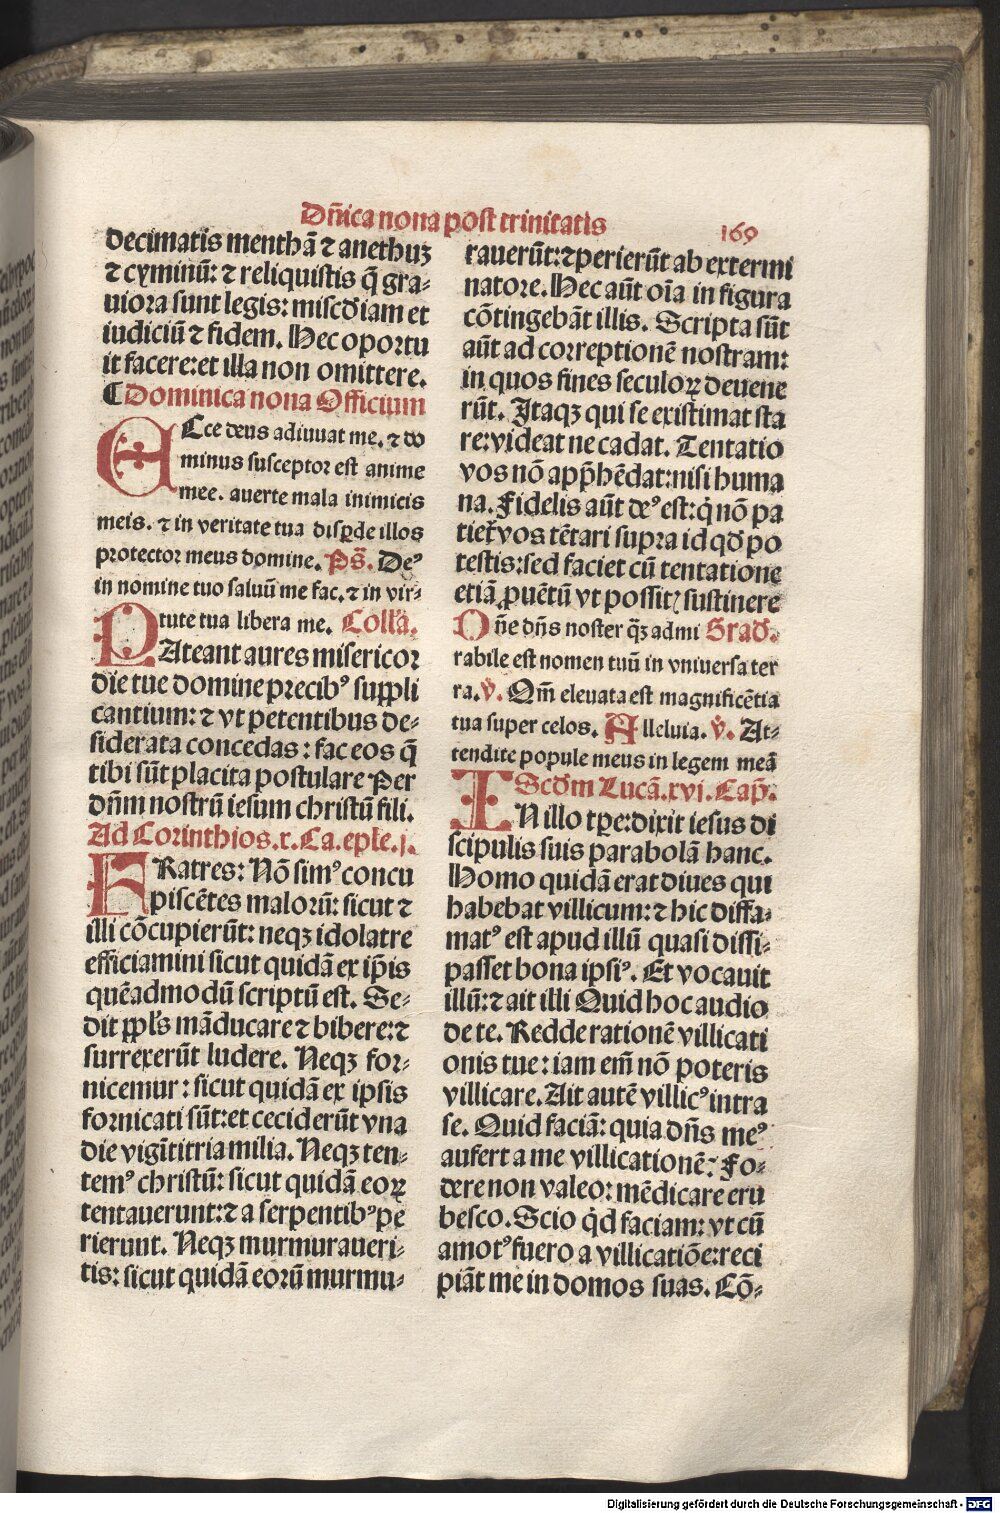 Dn̄ica nona post trinitatis 169
decimatis menthā ⁊ anethuꝫ
⁊ cyminū: ⁊ reliquistis q̄ gra⸗
uiora sunt legis: miscd̄iam et
iudiciū ⁊ fidem. Hec oportu
it facere: et illa non omittere.
¶ Dominica nona Officium
ECce deus adiuuat me. ⁊ do
minus susceptor est anime
mee. auerte mala inimicis
meis. ⁊ in veritate tua disꝑde illos
protector meus domine. Ps̄. Deꝰ
in nomine tuo saluū me fac. ⁊ in vir⸗
tute tua libera me. Coll̄a.
PAteant aures misericor
die tue domine precibꝰ suppli
cantium: ⁊ vt petentibus de⸗
siderata concedas: fac eos q̄
tibi sūt placita postulare Per
dn̄m nostrū iesum christū fili.
Ad Corinthios. x. Ca. ep̄le. j.
FRatres: Nō simꝰ concu
piscētes malorū: sicut ⁊
illi cōcupierūt: neqꝫ idolatre
efficiamini sicut quidā ex ip̄is
quēadmodū scriptū est. Se⸗
dit ppl̄s māducare ⁊ bibere: ⁊
surrexerūt ludere. Neqꝫ for⸗
nicemur: sicut quidā ex ipsis
fornicati sūt: et ceciderūt vna
die vigīti tria milia. Neqꝫ ten⸗
temꝰ christū: sicut quidā eoꝝ
tentauerunt: ⁊ a serpentibꝰ pe
rierunt. Neqꝫ murmuraueri⸗
tis: sicut quidā eorū murmu⸗
rauerūt: ⁊ perierūt ab extermi
natore. Hec aūt oīa in figura
cōtingebāt illis. Scripta sūt
aūt ad correptionē nostram:
in quos fines seculoꝝ deuene
rūt. Itaqꝫ qui se existimat sta
re: videat ne cadat. Tentatio
vos nō app̄hēdat: nisi huma
na. Fidelis aūt deꝰ est: q̇ nō pa
tiet̄ vos tētari supra id qd̄ po
testis: sed faciet cū tentatione
etiā ꝓuētū vt possit̄ sustinere
Dn̄e dn̄s noster q̄ꝫ admi Grad̄.
rabile est nomen tuū in vniuersa ter
ra. v̄. Qm̄ eleuata est magnificētia
tua super celos. Alleluia. v̄. At⸗
tendite popule meus in legem meā
Scd̄m Lucā. xvj. Cap̄.
IN illo tꝑe: dixit iesus di
scipulis suis parabolā hanc.
Homo quidā erat diues qui
habebat villicum: ⁊ hic diffa⸗
matꝰ est apud illū quasi dissi⸗
passet bona ipsiꝰ. Et vocauit
illū: ⁊ ait illi Quid hoc audio
de te. Redde rationē villicati
onis tue: iam em̄ nō poteris
villicare. Ait autē villicꝰ intra
se. Quid faciā: quia dn̄s meꝰ
aufert a me villicationē: Fo⸗
dere non valeo: mēdicare eru
besco. Scio q̇d faciam: vt cū
amotꝰ fuero a villicatiōe: reci
piāt me in domos suas. Cō⸗
Digitalisierung gefördert durch die Deutsche Forschungsgemeinschaft - DFG